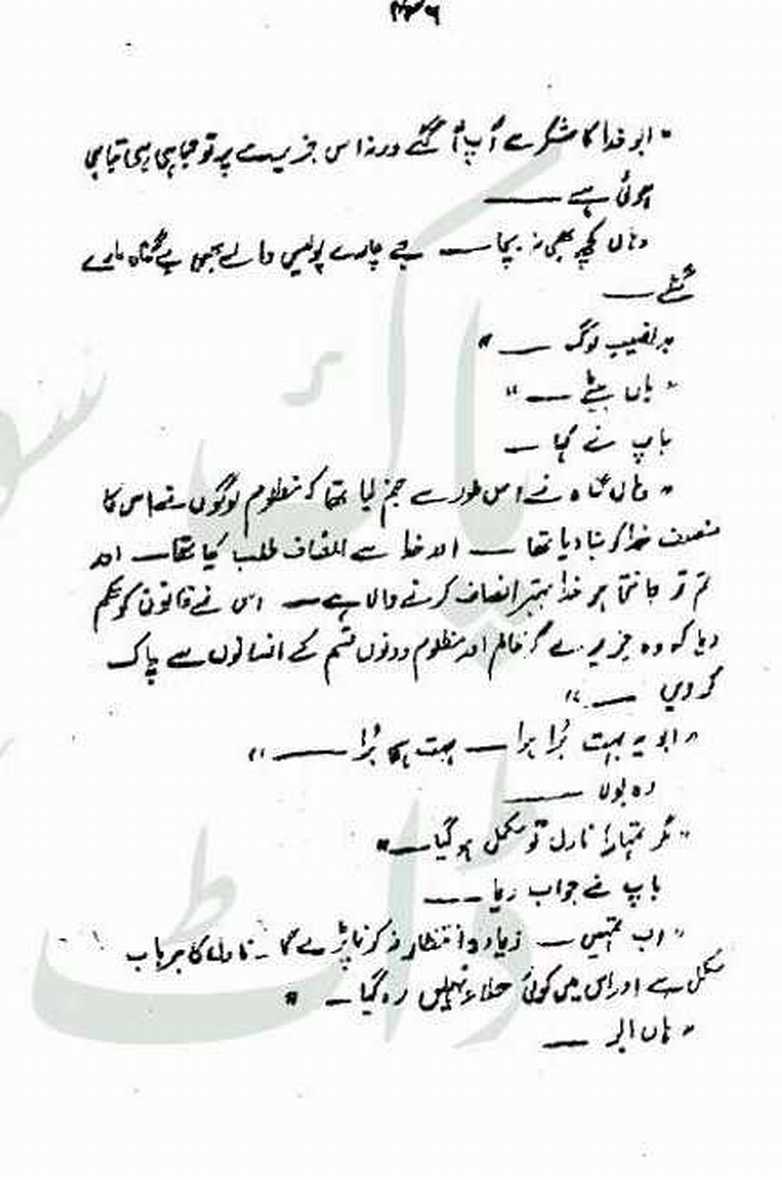 "ابو خدا کا شکر ہے آپ آ گئے ورنہ اس جزیرے پر تو تباہی ہی تباہی
ہوئی ہے ـــــ
وہاں کچھ بھی نہ بچا ـــ بے چارے پولیس والے بھی بے گناہ مارے
گئے ـــ
بدنصیب لوگ ـــ"
"ہاں بیٹے ـــ"
باپ نے کہا ـ
نے اس طور سے جنم لیا تھا کہ مظلوم لوگوں نے اس کا
منصف خدا کو بنا دیا تھا ـــ اور خدا سے انصاف طلب کیا تھا ـــ اور
تم تو جانتے ہو خدا بہتر انصاف کرنے والا ہے ـــ اس نے قانون کو حکم
دیا کہ وہ جزیرے کو ظالم اور مظلوم دونوں قسم کے انسانوں سے پاک
کر دیں ـــ"
"ابو یہ بہت بُرا ہوا ـــ بہت ہی بُرا ـــــ"
وہ بولا ـــــ
"مگر تمہارا ناول تو مکمل ہو گیا ـــ"
باپ نے جواب دیا ـــ
"اب تمہیں ـــ زیادہ انتظار نہ کرنا پڑے گا ـ ناول کا ہر باب
مکمل ہے اور اس میں کوئی خلاء نہیں رہ گیا ـــ"
"ہاں ابو ـــ
پاک
ڈاٹ